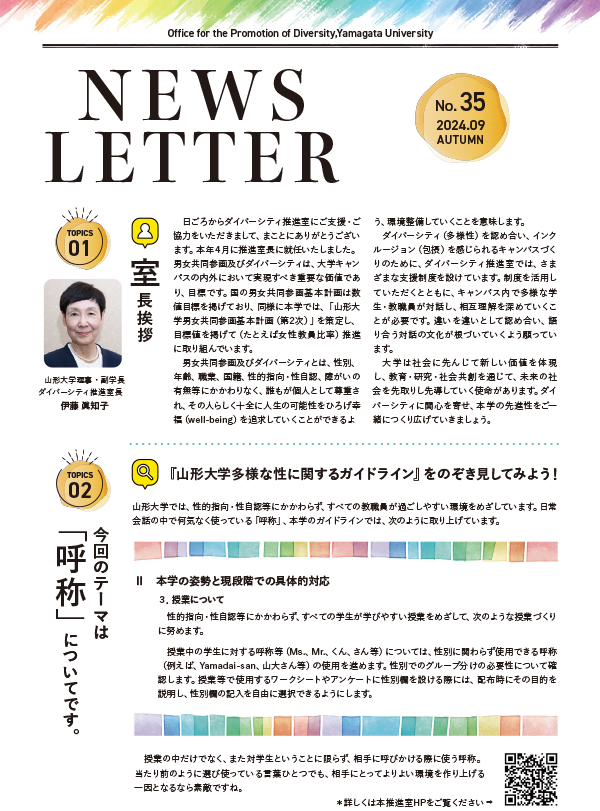 Office for the Promotion of Diversity,Yamagata University
NEWS
LETTER
No. 35
2024.09
AUTUMN
TOPICS
01
室長挨拶
山形大学理事・副学長
ダイバーシティ推進室長
伊藤 眞知子
日ごろからダイバーシティ推進室にご支援・ご
協力をいただきまして、まことにありがとうござい
ます。本年4月に推進室長に就任いたしました。
男女共同参画及びダイバーシティは、大学キャン
パスの内外において実現すべき重要な価値であ
り、目標です。国の男女共同参画基本計画は数
値目標を掲げており、同様に本学では、「山形大
学男女共同参画基本計画（第2次）」を策定し、
目標値を掲げて（たとえば女性教員比率）推進
に取り組んでいます。
男女共同参画及びダイバーシティとは、性別、
年齢、職業、国籍、性的指向・性自認、障がいの
有無等にかかわりなく、誰もが個人として尊重さ
れ、その人らしく十全に人生の可能性をひろげ幸
福（well-being）を追求していくことができるよ
う、環境整備していくことを意味します。
ダイバーシティ（多様性）を認め合い、インク
ルージョン（包摂）を感じられるキャンパスづく
りのために、ダイバーシティ推進室では、さま
ざまな支援制度を設けています。制度を活用し
ていただくとともに、キャンパス内で多様な学
生・教職員が対話し、相互理解を深めていくこ
とが必要です。違いを違いとして認め合い、語
り合う対話の文化が根づいていくよう願ってい
ます。
大学は社会に先んじて新しい価値を体現
し、教育・研究・社会共創を通じて、未来の社
会を先取りし先導していく使命があります。ダイ
バーシティに関心を寄せ、本学の先進性をご一
緒につくり広げていきましょう。
TOPICS
02
今回のテーマは
「呼称」についてです。
『山形大学多様な性に関するガイドライン』をのぞき見してみよう！
山形大学では、性的指向・性自認等にかかわらず、すべての教職員が過ごしやすい環境をめざしています。日常
会話の中で何気なく使っている「呼称」、本学のガイドラインでは、次のように取り上げています。
Ⅱ 本学の姿勢と現段階での具体的対応
3．授業について
性的指向・性自認等にかかわらず、すべての学生が学びやすい授業をめざして、次のような授業づくり
に努めます。
授業中の学生に対する呼称等（Ms.、Mr.、くん、さん等）については、性別に関わらず使用できる呼称
（例えば、Yamadai-san、山大さん等）の使用を進めます。性別でのグループ分けの必要性について確
認します。授業等で使用するワークシートやアンケートに性別欄を設ける際には、配布時にその目的を
説明し、性別欄の記入を自由に選択できるようにします。
授業の中だけでなく、また対学生ということに限らず、相手に呼びかける際に使う呼称。
当たり前のように選び使っている言葉ひとつでも、相手にとってよりよい環境を作り上げる
一因となるなら素敵ですね。
＊詳しくは本推進室HPをご覧ください➡